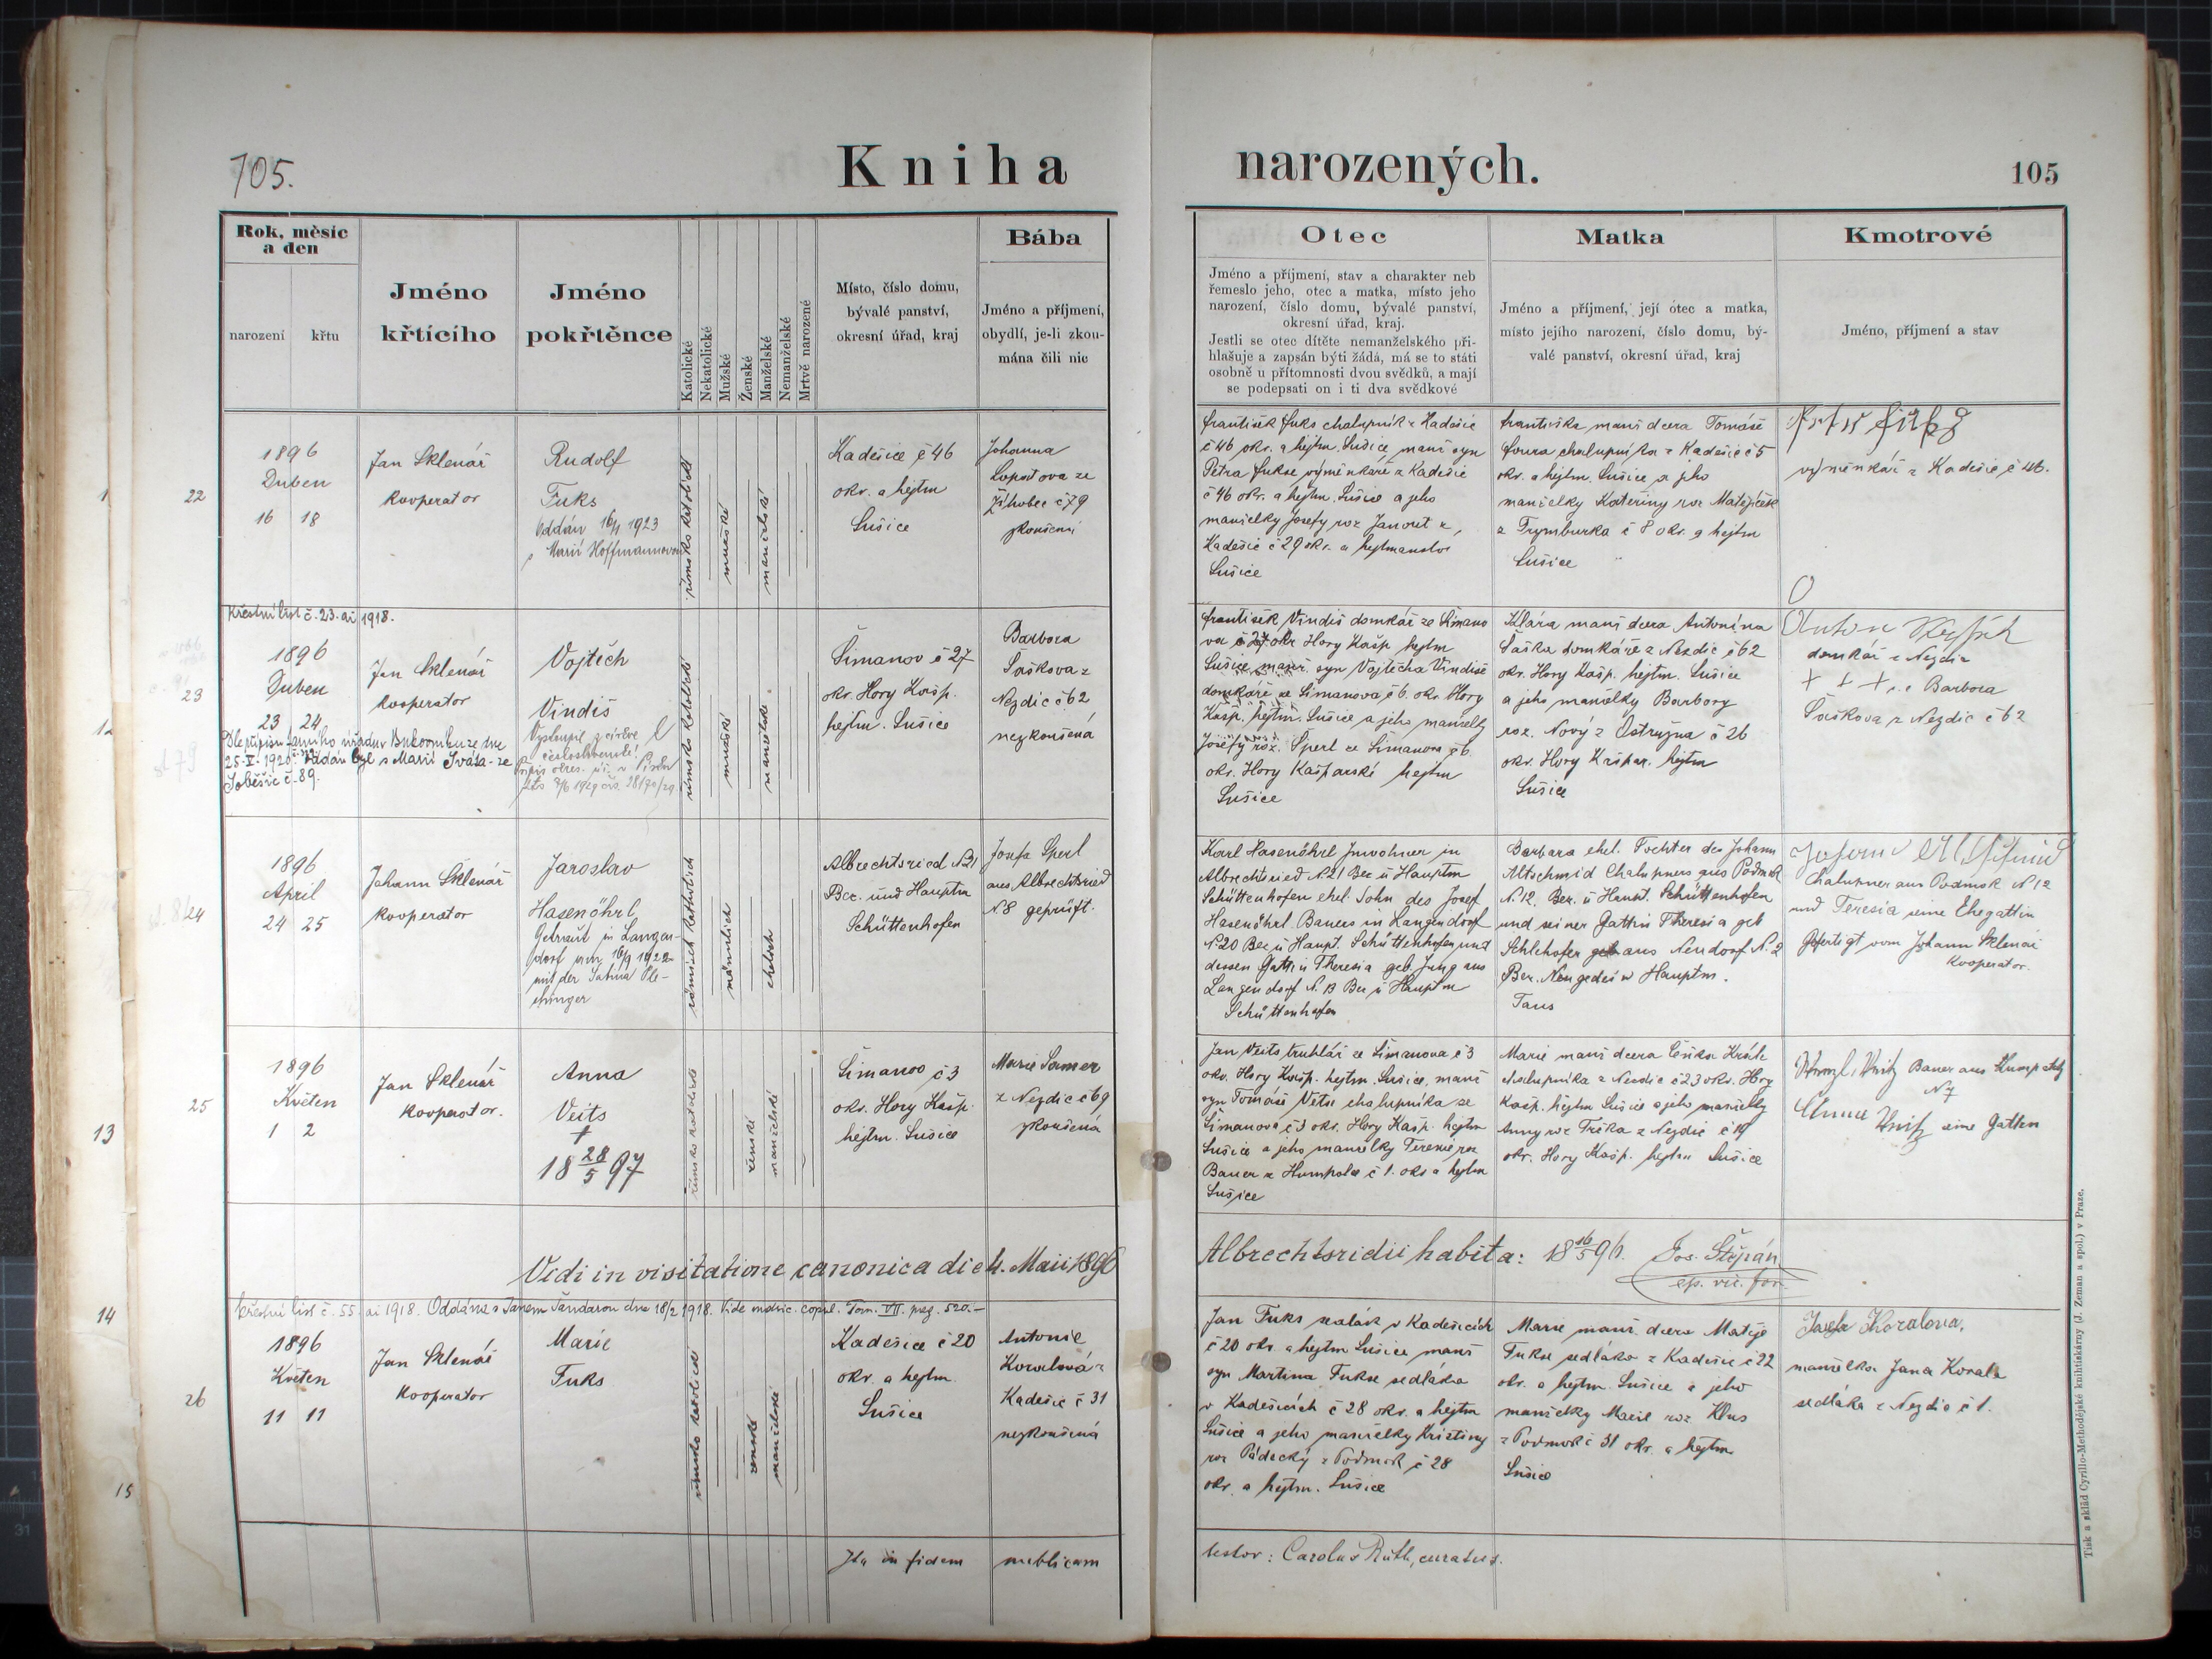 105.
Kniha
narozených.
105
Rok, měsíc
a den
narození
křtu
Jméno
křtícího
Jméno
pokřtěnce
Katolické
Nekatolické
Mužské
Ženské
Manželské
Nemanželské
Mrtvě narozené
Místo, číslo domu,
bývalé panství,
okresní úřad, kraj
Bába
Jméno a příjmení,
obydlí, je-li zkou-
mána čili nic
Otec
Jméno a příjmení, stav a charakter neb
řemeslo jeho, otec a matka, místo jeho
narození, číslo domu, bývalé panství,
okresní úřad, kraj.
Jestli se otec dítěte nemanželského při-
hlašuje a zapsán býti žádá, má se to státi
osobně u přítomnosti dvou svědků, a mají
se podepsati on i ti dva svědkové
Matka
Jméno a příjmení, její otec a matka,
místo jejího narození, číslo domu, bý-
valé panství, okresní úřad, kraj
Kmotrové
Jméno, příjmení a stav
22
1896
Duben
16 18
Jan Sklenář
kooperator
Rudolf
Fuks
Oddán 16/1 1923
s Marií Hoffmannovou
římsko katolické
mužské
manželské
Kadešice č 46
okr. a hejtm
Sušice
Johanna
ze
Žihobec č 79
zkoušená
František Fuks chalupník z Kadešic
č 46 okr. a hejtm. Sušice, manž syn
Petra Fukse výměnkáře z Kadešic
č 46 okr. a hejtm. Sušice a jeho
manželky Josefy roz Janout z
Kadešic č 29 okr. a hejtmanstvo
Sušice
Františka manž dcera Tomáše
chalupníka z Kadešic č 5
okr. a hejtm. Sušice a jeho
manželky Kateřiny roz Matějíček
z Frymburka č 8 okr. a hejtm
Sušice
výměnkář z Kadešic č 46.
Křestní list č. 23. ai 1918.
23
1896
Duben
23 24
Jan Sklenář
kooperator
Vojtěch
Vindiš
Vystoupil z církve
římsko katolické
mužské
manželské
Šimanov č 27
okr. Hory Kašp.
hejtm. Sušice
Barbora
Šaškova z
Nezdic č 62
nezkoušená
František Vindiš domkář ze Šimano
va č 27 okr Hory Kašp hejtm
Sušice, manž. syn Vojtěcha Vindiše
domkáře ze Šimanova č 6. okr. Hory
Kašp. hejtm. Sušice a jeho manželky
Josefy roz. Sperl ze Šimanova č 6.
okr. Hory Kašparské hejtm
Sušice
Klára manž dcera Antonína
Šaška domkáře z Nezdic č 62
okr. Hory Kašp. hejtm. Sušice
a jeho manželky Barbory
roz. Nový z Ostružna č 26
okr. Hory Kašpar. hejtm
Sušice
domkář z Nezdic
+ + + Barbora
Šaškova z Nezdic č 62
25. V. 1920. Oddán byl s Marií ze
Soběšic č. 89.
24
1896
April
24 25
Johann Sklenář
Kooperator
Jaroslav
Hasenöhrl
Getraut in Langen-
dorf am 16/9 1922
mit der
römisch katholisch
männlich
ehelich
Albrechtsried N 21
Bez. und Hauptm
Schüttenhofen
Josefa Sperl
aus Albrechtsried
N 8 geprüft.
Karl Hasenöhrl Inwohner in
Albrechtsried N 21 Bez u Hauptm
Schüttenhofen ehel. Sohn des Josef
Hasenöhrl Bauers in Langendorf
N 20 Bez u Haupt. Schüttenhofen und
dessen Gattin Theresia geb. Jung aus
Langendorf N. 13 Bez u Hauptm
Schüttenhofen
Barbara ehel. Tochter des Johann
Altschmid Chalupners aus Podmok
N. 12. Bez. u Haupt. Schüttenhofen
und seiner Gattin Theresia geb
aus Neudorf N. 2
Bez. Neugedein Hauptm.
Taus
Chalupner aus Podmok N 12
und Teresia seine Ehegattin
Gefertigt vom Johann Sklenář
Kooperator.
25
1896
Květen
1 2
Jan Sklenář
kooperator.
Anna
Veits
†
18 28/5 97
římsko katolické
ženské
manželské
Šimanov č 3
okr. Hory Kašp
hejtm. Sušice
Marie
z Nezdic č 69
zkoušená
Jan Veits truhlář ze Šimanova č 3
okr. Hory Kašp. hejtm. Sušice, manž
syn Tomáše chalupníka ze
Šimanova č 3 okr. Hory Kašp. hejtm
Sušice a jeho manželky Terezie roz
Bauer z Humpolce č 1. okr a hejtm
Sušice
Marie manž dcera
chalupníka z Nezdic č 23 okr. Hory
Kašp. hejtm Sušice a jeho manželky
Anny roz z Nezdic č 19
okr. Hory Kašp. hejtm Sušice
Bauer aus
N 7
Anna Veitz seine Gattin
Vidi in visitatione canonica die 4. Maii 1896
Albrechtsridii habita: 18 16/5 96. Jos. Štěpán
ep. vic. for.
Křestní list č. 55. ai 1918. Oddána s Janem Šandarou dne 18/2 1918. Vide matric. copul. Tom. VII. pag. 520.
26
1896
Květen
11 11
Jan Sklenář
kooperator
Marie
Fuks
římsko katolické
ženské
manželské
Kadešice č 20
okr. a hejtm.
Sušice
Antonie
Kovalová z
Kadešic č 31
nezkoušená
Jan Fuks sedlák v Kadešicích
č 20 okr. a hejtm Sušice manž
syn Martina Fukse sedláka
v Kadešicích č 28 okr. a hejtm
Sušice a jeho manželky Kristiny
roz Pádecký z Podmok č 28
okr. a hejtm. Sušice
Marie manž. dcera Matěje
Fukse sedláka z Kadešic č 22
okr. a hejtm. Sušice a jeho
manželky Marie roz. Klus
z Podmok č 31 okr. a hejtm
Sušice
Kovalova,
manželka Jana Kovala
sedláka z Nezdic č 1.
Ita in fidem publicam
testor: Carolus Rüth, curatus.
Tisk a sklad Cyrillo-Methodějské knihtiskárny (J. Zeman a spol.) v Praze.
12
13
14
15
31